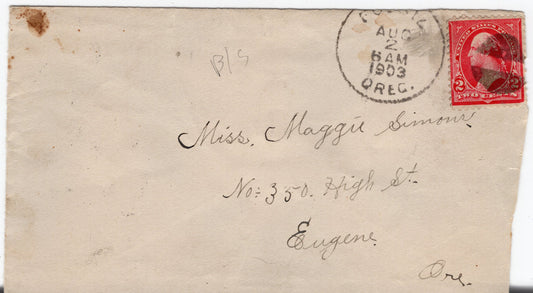 B/S
AUG
2
6 AM
1903
OREG.
2
Miss. Maggie Simons
No: 350. High St.
Eugene
Ore.